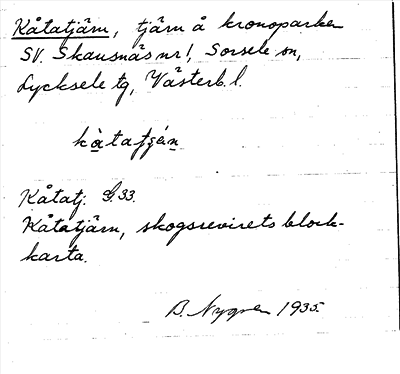 Kåtatjärn, tjärn å kronoparken
SV. Skansnäs nr 1, Sorsele sn,
Lycksele tg, Västerb. l.
kåtatjä́n
Kåtatj. G. 33.
Kåtatjärn, skogsrevirets block-
karta.
B. Nygren 1935.